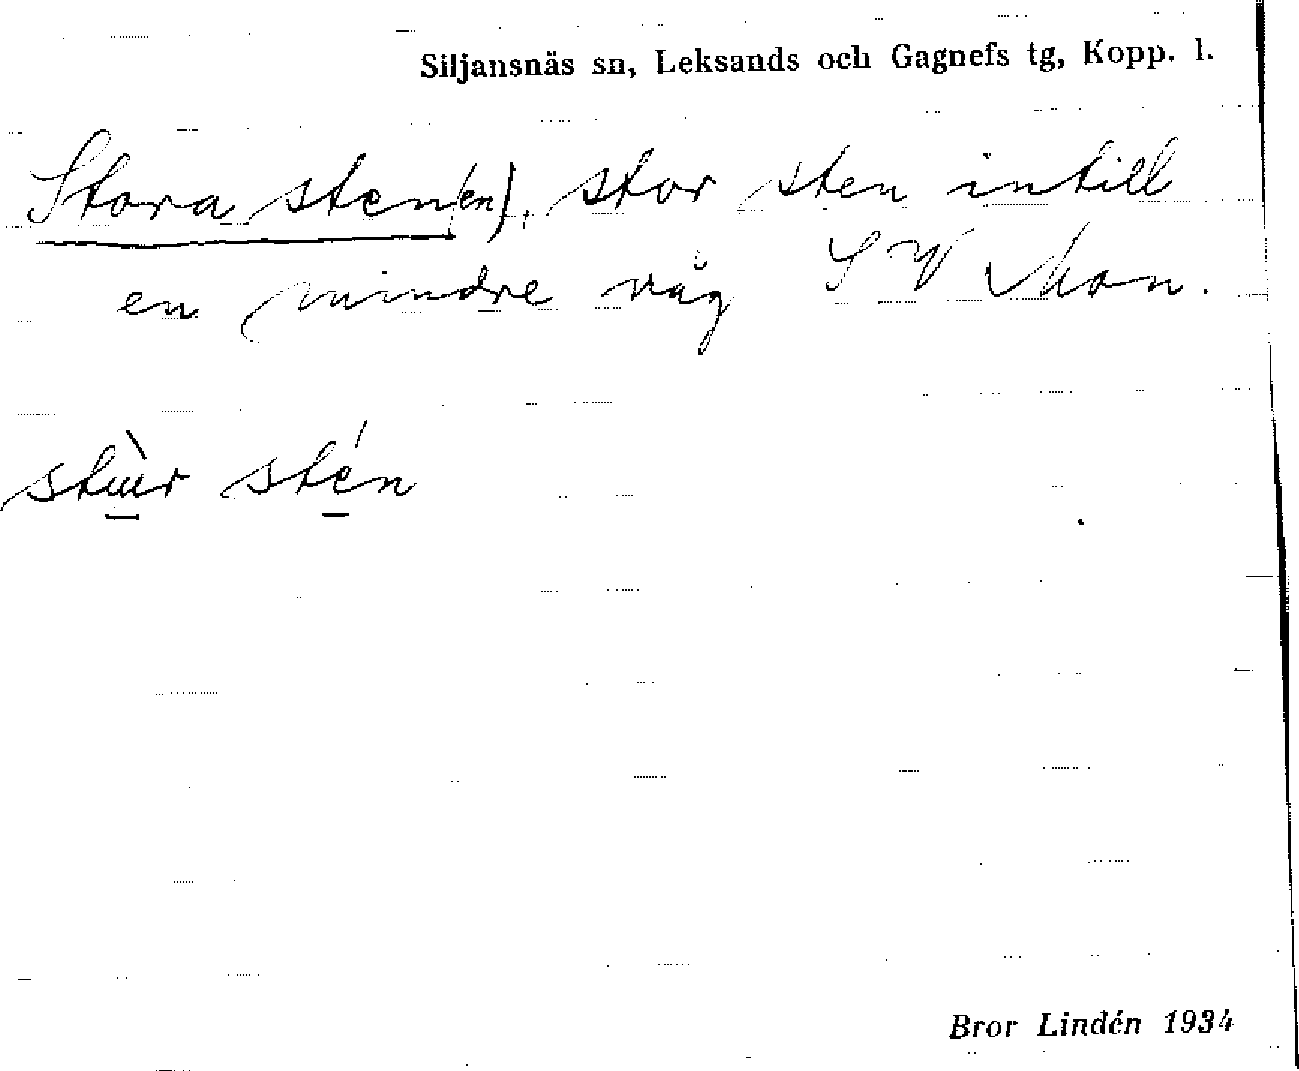 Siljansnäs sn, Leksands och Gagnefs tg, Kopp. l.
Stora sten(en), stor sten intill
en mindre väg SV Mon.
stùr stén
Bror Lindén 1934